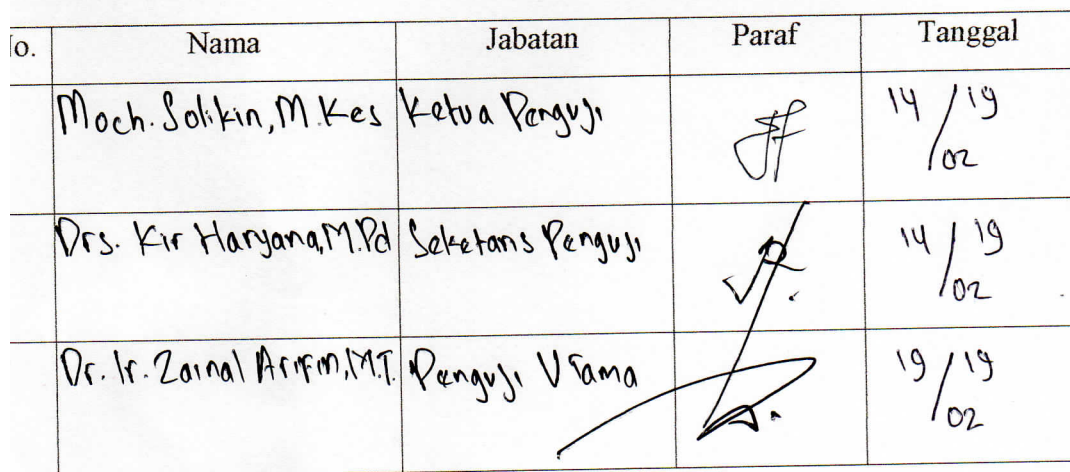 No. Nama Jabatan Paraf Tanggal
Moch. Solikin, M.Kes Ketua Penguji 14/02 19
Drs. Kir Haryana, M.Pd Seketaris Penguji 14/02 19
Dr. Ir. Zainal Arifin, M.T. Penguji Utama 19/02 19